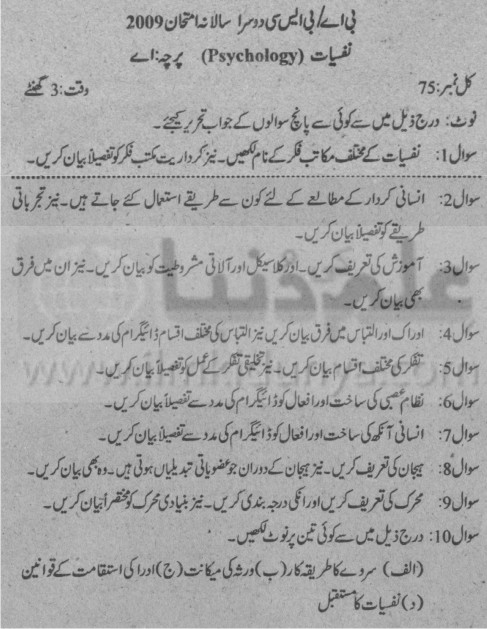 بی اے/بی ایس سی دوسرا سالانہ امتحان 2009
نفسیات (Psychology) پرچہ: اے
کل نمبر: 75 وقت: 3 گھنٹے
نوٹ: درج ذیل میں سے کوئی سے پانچ سوالوں کے جواب تحریر کیجئے۔
سوال 1: نفسیات کے مختلف مکاتب فکر کے نام لکھیں۔ نیز کرداریت مکتب فکر کو تفصیلاً بیان کریں۔
سوال 2: انسانی کردار کے مطالعے کے لئے کون سے طریقے استعمال کئے جاتے ہیں۔ نیز تجرباتی
طریقے کو تفصیلاً بیان کریں۔
سوال 3: آموزش کی تعریف کریں۔ اور کلاسیکل اور آلاتی مشروطیت کو بیان کریں۔ نیز ان میں فرق
بھی بیان کریں۔
علم دنیا
سوال 4: ادراک اور التباس میں فرق بیان کریں نیز التباس کی مختلف اقسام ڈائیگرام کی مدد سے بیان کریں۔
سوال 5: تفکر کی مختلف اقسام بیان کریں۔ نیز تخلیقی تفکر کے عمل کو تفصیلاً بیان کریں۔
سوال 6: نظام عصبی کی ساخت اور افعال کو ڈائیگرام کی مدد سے تفصیلاً بیان کریں۔
سوال 7: انسانی آنکھ کی ساخت اور افعال کو ڈائیگرام کی مدد سے تفصیلاً بیان کریں۔
سوال 8: ہیجان کی تعریف کریں۔ نیز ہیجان کے دوران جو عضویاتی تبدیلیاں ہوتی ہیں۔ وہ بھی بیان کریں۔
سوال 9: محرک کی تعریف کریں اور انکی درجہ بندی کریں۔ نیز بنیادی محرک کو مختصراً بیان کریں۔
سوال 10: درج ذیل میں سے کوئی تین پر نوٹ لکھیں۔
(الف) سروے کا طریقہ کار (ب) ورثہ کی میکانت (ج) ادراکی استقامت کے قوانین
(د) نفسیات کا مستقبل